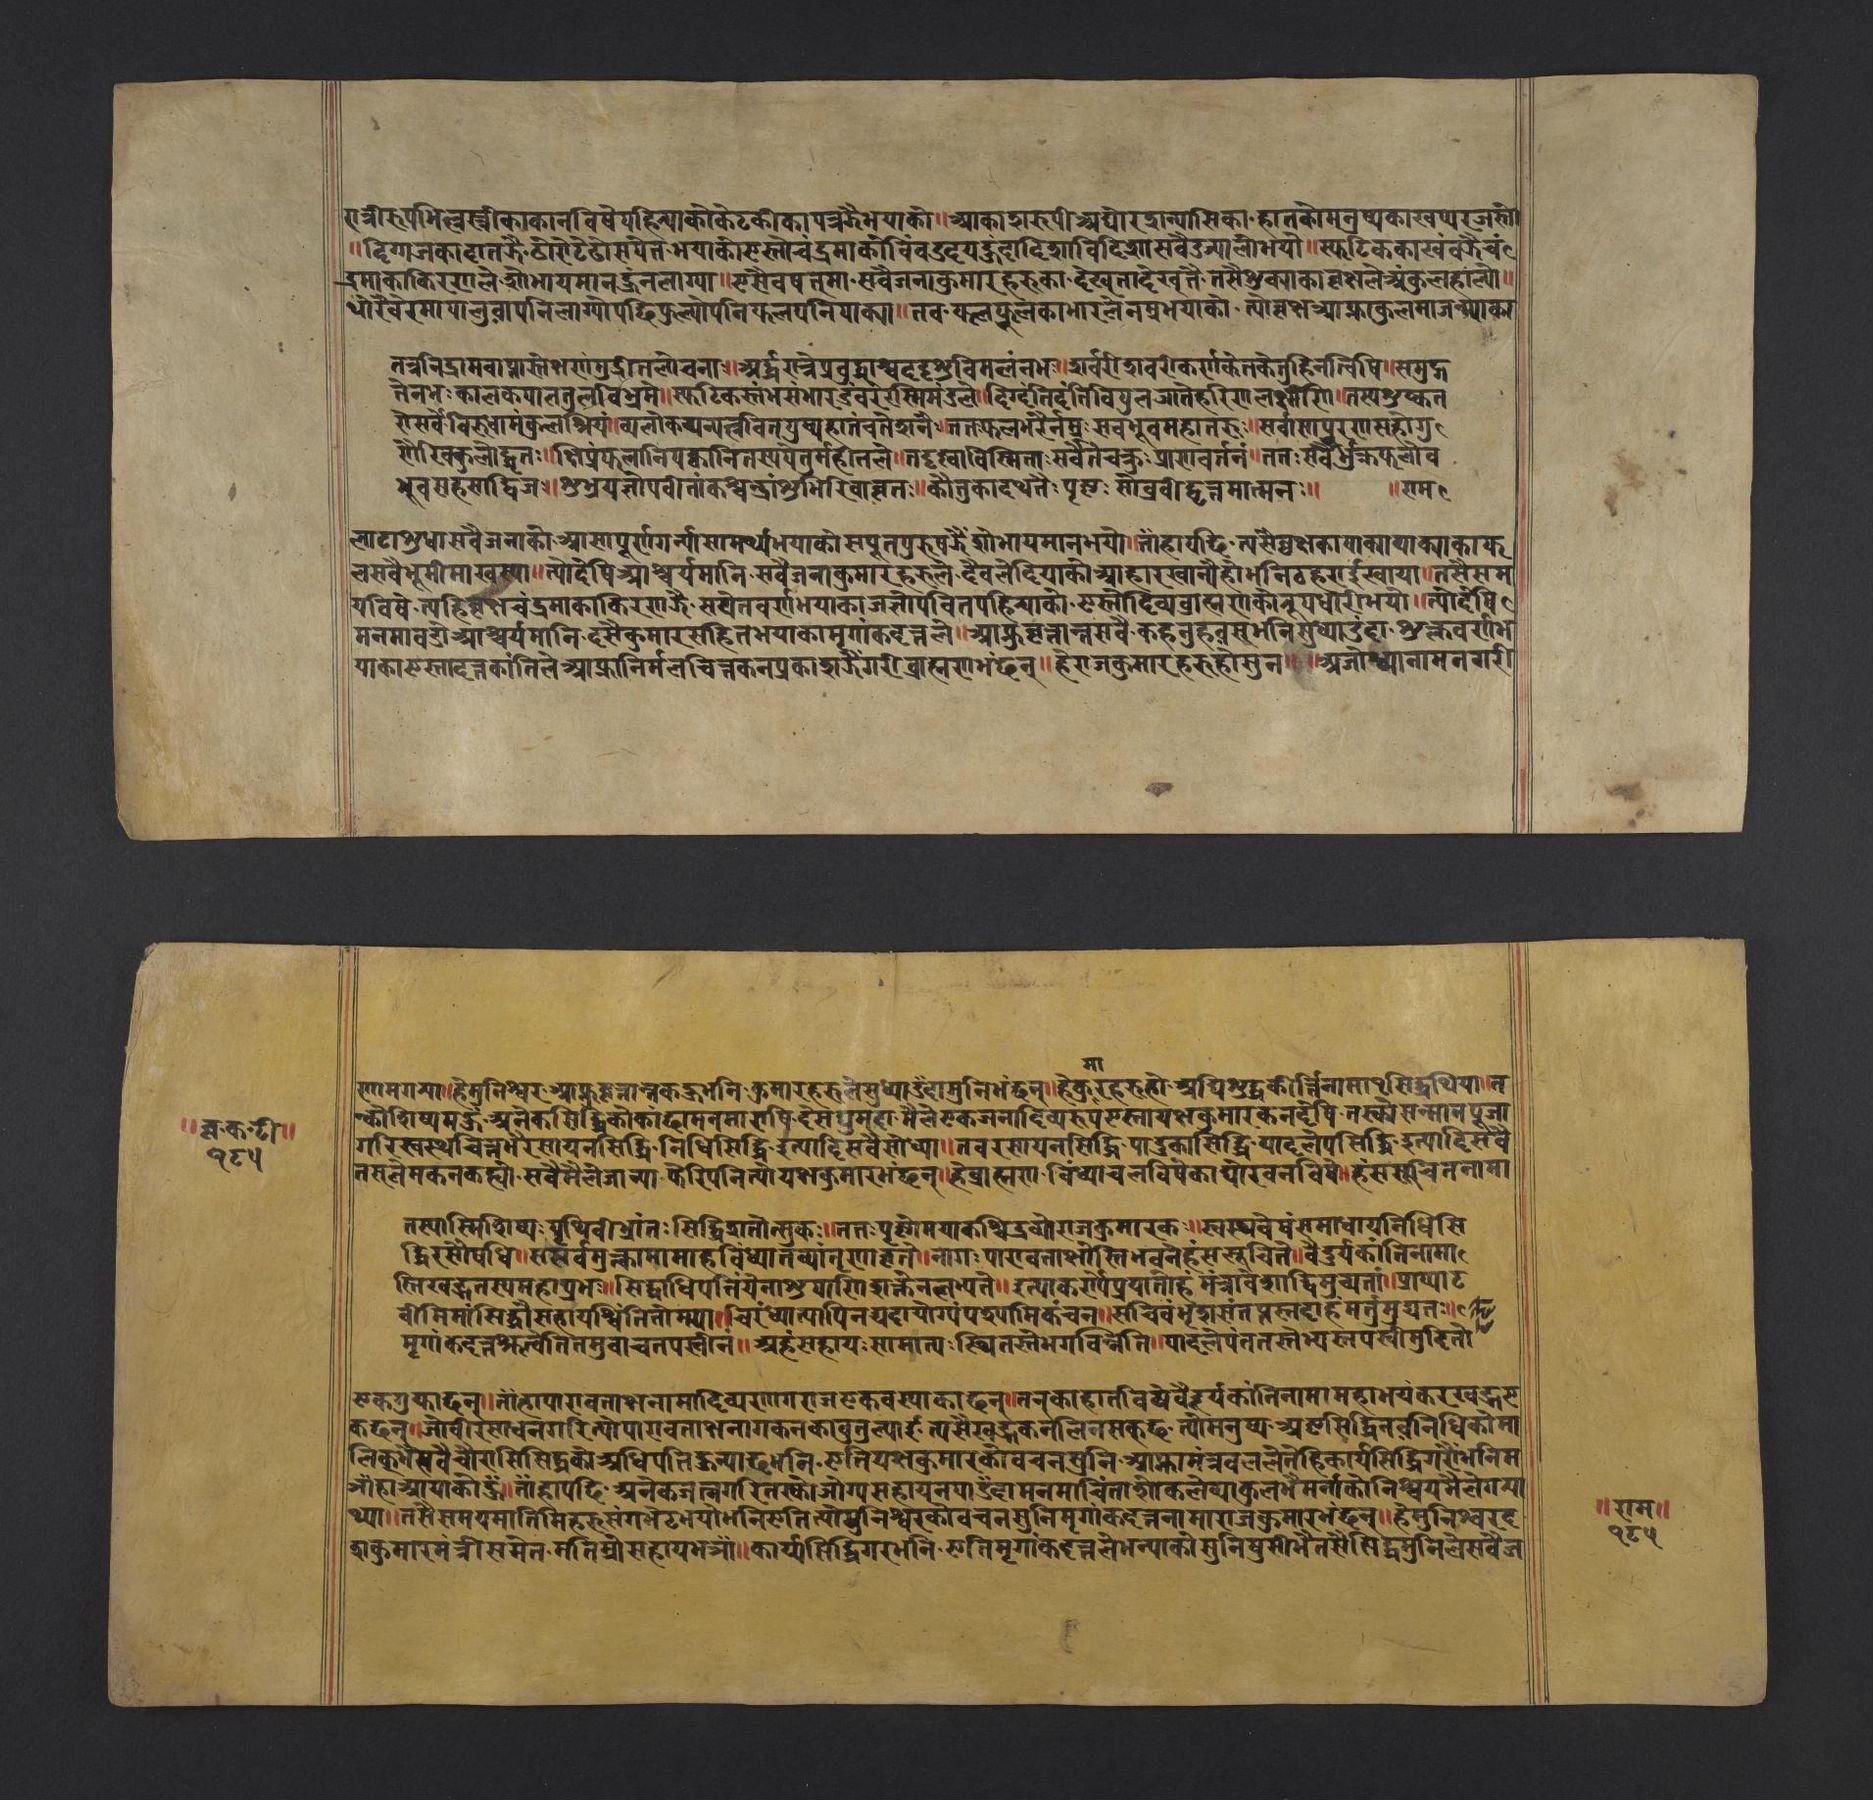 रात्रीरूपभिल्लस्त्रीकाकानविषेपहित्याकोकेटकीकापत्रझैभयाको॥आकाशरूपीअघोरशन्यासिका·हातकोमनुष्यकाखप्परजस्तो
॥दिग्गजकादातझै·ठोसठैठोसपेत·भयाकोएस्तोचंद्रमाकोविंवउदयहुंदादिशाविदिशासवैउज्यालोभयो॥स्फटिककाखंवझैचं
द्रमाकाकिरणले·शोभायमानहुंनलाग्या॥एसैवषतमा·सवैजनाकुमारहरुका·देखतादेखतै·तसैशुक्याकावृक्षलेअंकुलहाल्यो॥
थोरैवेरमापालुवापनिलाग्योपछिफुल्योपनिफलपनिपाक्या॥तव·फलफुलकाभारलेनम्रभयाको·त्योवृक्षआफ्नाकुलमाजन्म्याका
तत्रनिद्रामवाप्नास्तेक्षणंमुद्रीतलोचनाः॥अर्द्धरात्रेप्रवुद्धाश्चददृशुर्विमलंनभः॥शर्वरीशवरीकर्णकेतकेतुहिनत्विषि॥समुद्ग
तेनभःकालकपालतुलविभ्रमे॥स्फटिकस्तंभसंभारडंवरेरस्मिमंडले॥दिग्दंतिदंतिविपुलजातेहरिणलक्ष्मणि॥तस्यशुष्कत
रोसर्वेविरुढामंकुलश्रियं॥व्यलोकयन्पल्लवितपुष्पहातंचतेशनैः॥ततःफलभरैर्नम्रःसवभूवमहातरुः॥सर्वासापुरणसहोगु
णीरिवकुलोद्भवः॥क्षिप्रंफलानिपक्वानितस्यपेतुर्महीतले॥तदृष्ट्वाविस्मिताःसर्वेतेचक्रुःप्राणवर्तनं॥ततःसर्वैर्भुक्तफलोव
भूवसहसाद्विजः॥शुभ्रयज्ञोपवीतांकश्चन्द्रांशुभिरिवावृतः॥कौतुकादथतैःपृष्टःसोब्रवीद्वृत्तमात्मनः॥ ॥राम
लाटाशुधासवैजनाको·आसापूर्णगर्न्यासामर्थ्यभयाकोसपूतपुरुषझैंशोभायमानभयो॥ताँहापछि·त्यसैव्रृक्षकापाक्यापाक्याकाफ
लसवैभूमीमाखस्या॥त्योदेषिआश्चर्यमानि·सवैजनाकुमारहरुले·दैवलेदियाकोआहारखानौहौभनिठहराईखाया॥तसैसम
यविषे·त्यहिवृक्षचंद्रमाकाकिरणझै·सपेतवर्णभयाकाजनोपवितपहिर्याको·एस्तोदिव्यव्राह्मणकोरूपधारीभयो॥त्योदेषि
मनमावडोआश्चर्यमानि·दसैकुमारसहितभयाकामृगांकदत्तले॥आफ्नुवृत्तान्तसवै·कहनुहवसुभनिसुध्याउंदा·शुक्लवर्णभ
याकाएस्तादत्तकांतिलेआफ्नानिर्मलचित्तकनप्रकाशझैंगरीव्राह्मणभंछन्॥हेराजकुमारहरुहोसुन॥अजोध्यानामनगरी
॥वृ·क·टी॥
१९५
मा
णामगया॥हेमुनिश्वर·आफ्नुवृत्तान्तकहुभनि·कुमारहरुलेसुध्याउंदामुनिभंछन्॥हेकुरहरुहो·अघिशुद्धकीर्त्तिनामासिद्धथिया॥त
न्कोशिष्यमहुं·अनेकसिद्धिकोकांछामनमाराषि·देसघुम्दा·मैलेएकजनादिव्यरूपएस्तायक्षकुमारकनदेषि·तस्कोसन्मानपूजा
गरिस्वस्थचित्तभैरसायनसिद्धि·निधिसिद्धि·इत्यादिसवैसोध्या॥तवरसायनसिद्धि·पादुकासिद्धि·पादलेपसिद्धि·इत्यादिसवै
तसलेमकनकह्यो·सवैमैलेजान्या·फेरिपनित्योयक्षकुमारभंछन्॥हेव्राह्मण·विंध्याचलविषेकाघोरवनविषे॥हंससूचितनामा
तस्यास्मिशिष्यःपृथिवीभ्रांतःसिद्धिशतोत्सुकः॥ततःपृष्टोमयाकश्चिद्रव्योराजकुमारकः॥स्वस्थवेषंसमाधायनिधिसि
द्धिरसौषधि॥सइर्वमुक्त्वामामाहविंध्यातव्यांनृणाहृतो॥नागःपारावताक्षोस्तिभवनेहंससूचिते॥वैडुर्यकांतिनामा
स्तिखड्गतस्यमहाप्रभः॥सिद्धाधिपतिंयेनाशुपाणिशक्तेनलभ्यते॥इत्याकर्ण्यप्रयातोहंमंत्रावेशाद्विमुच्यतां॥प्राप्याट
वीमिमांसिद्धौसहायश्चिंतितोमया॥चिरंध्यात्वापिनयदायोग्यंपश्यामिकंचन॥सचिवंभृशसंतप्तस्तदाहंमर्तुमुद्यतः॥
मृगांकदत्तश्रुत्वेतितमुवाचतपस्वीनं॥अहंसहायःसामात्यःस्थितस्तेभगवन्निति॥पादलेपंततस्तेभ्यस्तपस्वीमुदितो
एकगुफाछन्॥तांहापारावताक्षनामादिव्यरणागराजएकवस्याकाछन्॥तन्काहातविषेवैडूर्यकांतिनामामहाभयंकरखड्गए
कछन्॥जोवीरसाधनगरित्योपारावताक्षनागकनकावुतुल्याई·त्यसैखड्गकनलिनसक्छ·त्योमनुष्य·अष्टसिद्धिनवनिधिकोमा
लिक्भैसवैचौरासिसिद्धकोअधिपतिहुन्याछभनि·एतियक्षकुमारकोवचनसुनि·आफ्नामंत्रवलेलेतेहिकार्यसिद्धिगरौंभनिम
ञाँहाआयाकोहुँ॥ताँहापछि·अनेकजत्नगरितस्कोजोग्यसहायनपाउंदामनमाचिंताशोकलेव्याकुलभैमर्नाकोनिश्चयमैलेगर्या
थ्या॥तसैसमयमातिमिहरुसंगभेटभयोभनिएतित्योमुनिश्वरकोवचनसुनिमृगांकदत्तनामाराजकुमारभंछन्॥हेमुनिश्वरद
शकुमारमंत्रीसमेत·मतिम्रोसहायभञा॥कार्य्यसिद्धिगरभनि·एतिमृगांकदत्तलेभन्याकोसुनिषुसीभैतसैसिद्धमुनिलेसवैज
॥राम॥
१९५